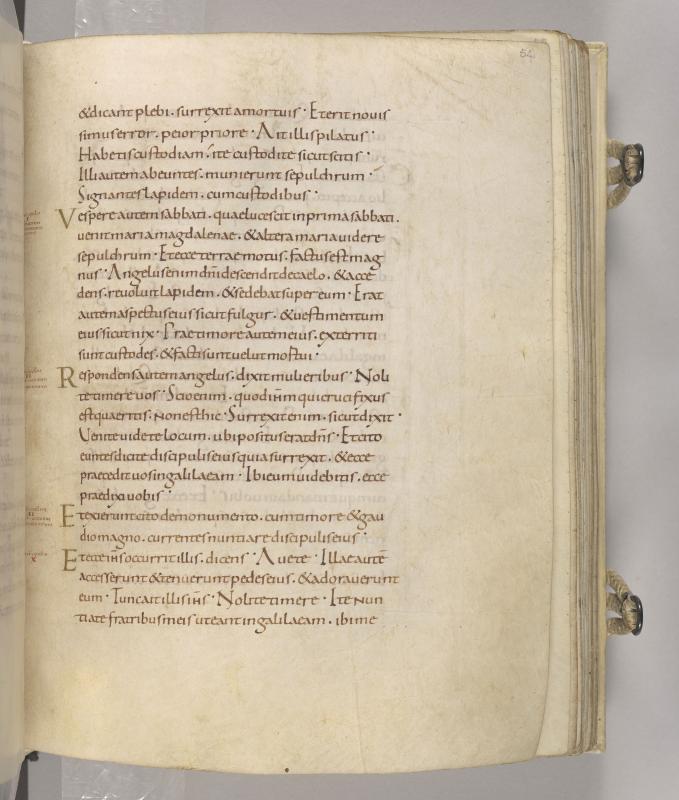 54
&dicant plebi. surrexit amortuis · Eterit nouis
simuserror. peior priore · Ait illis pilatus ·
Habetis custodiam. ite custodite sicut scitis ·
Illi autem abeuntes. munierunt sepulchrum ·
Signantes lapidem. cum custodibus ·
Vespere autem sabbati. quae lucescit in prima sabbati.
uenit maria magdalenae. & altera maria uidere
sepulchrum · Et ecce terrae motus. factus est mag
nus · Angelus enim dñi descendit de caelo. & acce
dens. reuoluit lapidem. & sedebat super eum · Erat
autem aspectus eius sicut fulgur. & uestimentum
eius sicut nix · Prae timore autem eius. exterriti
sunt custodes. & facti sunt uelut mortui ·
Respondens autem angelus. dixit mulieribus · Noli
te timere uos · Scio enim. quod ihm̄ qui crucifixus
est quaeritis. Non est hic · Surrexit enim. sicut dixit ·
Venite uidete locum. ubi positus erat dn̄s · Et cito
euntes dicite discipulis eius quia surrexit. & ecce
praecedit uos in galilaeam · Ibi eum uidebitis. ecce
praedixi uobis ·
Et exierunt cito de monumento. cum timore & gau
dio magno. currentes nuntiare discipulis eius ·
Et ecce ih̄s occurrit illis. dicens · Auete · Illae autē
accesserunt & tenuerunt pedes eius. & adorauerunt
eum · Tunc ait illis ih̄s · Nolite timere · Ite nun
tiate fratribus meis ut eant in galilaeam. ibi me